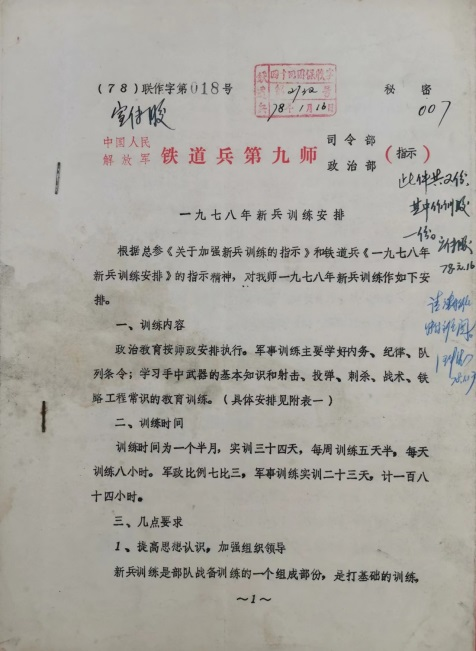 (78)联作字第018号
秘密
007
78年1月16日
宣传股
中国人民
解放军
铁道兵第九师
司令部
政治部
(指示)
此件共2份
其中作训股
一份。
一九七八年新兵训练安排
根据总参《关于加强新兵训练的指示》和铁道兵《一九七八年
新兵训练安排》的指示精神，对我师一九七八年新兵训练作如下安
排。
一、训练内容
政治教育按师政安排执行。军事训练主要学好内务、纪律、队
列条令；学习手中武器的基本知识和射击、投弹、刺杀、战术、铁
路工程常识的教育训练。(具体安排见附表一)
二、训练时间
训练时间为一个半月，实训三十四天，每周训练五天半，每天
训练八小时。军政比例七比三，军事训练实训二十三天，计一百八
十四小时。
三、几点要求
1、提高思想认识，加强组织领导
新兵训练是部队战备训练的一个组成部份，是打基础的训练。
～1～